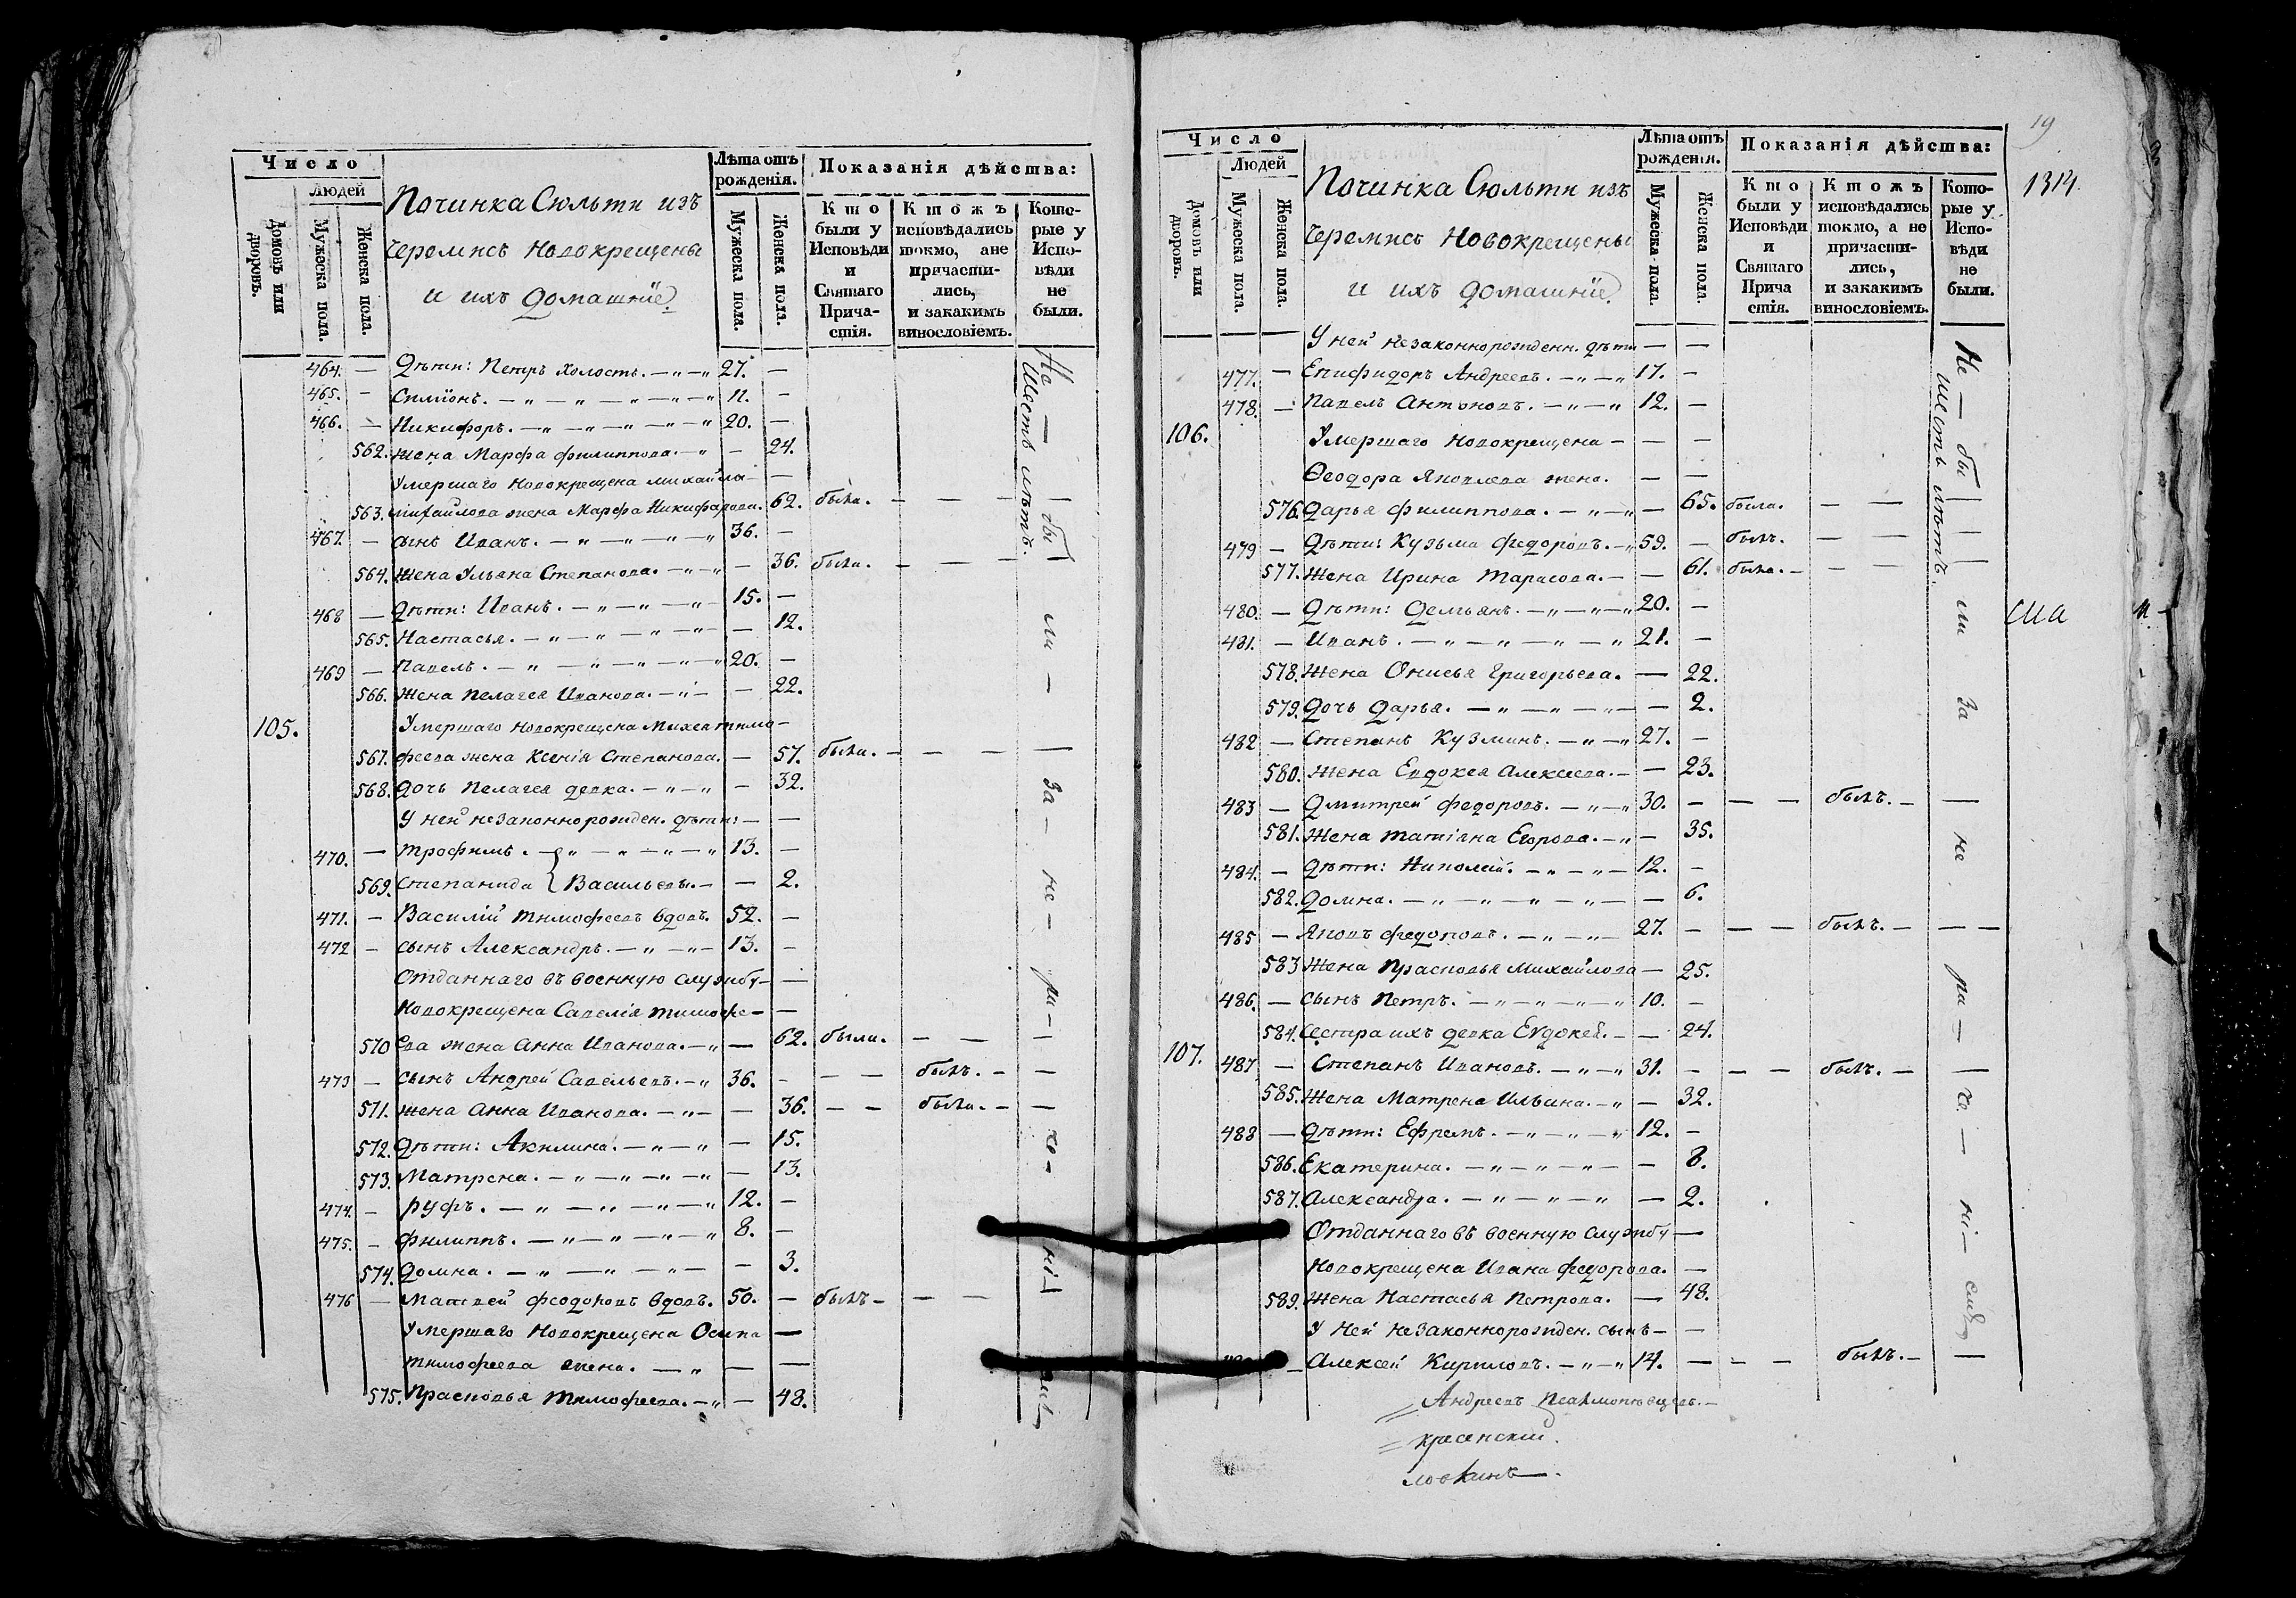 Число
Людей
Домовъ или дворовъ.
Мужеска пола.
Женска пола.
Починка Сюльти изъ
черемисъ новокрещены
и ихъ домашніе
Лѣта отъ рожденія.
Мужеска пола.
Женска пола.
Показанія дѣйства:
Кто были у Исповѣди и Святаго Причастія.
Ктожъ исповѣдались токмо, а не причастились, и закакимъ винословіемъ.
Которые у Исповѣди не были.
464. — Дѣти: Петръ холостъ. — 27. —
465. — Симіонъ. — 11. —
466. — Никифоръ. — 20. —
562. жена Марфа Филиппова. — 24.
Умершаго новокрещена михайла —
563. михайлова жена Марфа Никифарова. 62. была. — — — —
467. — сынъ Иванъ. — 36. —
564. Жена Ульяна Степанова. — 36. была. — — —
468 — Дѣти: Иванъ. — 15. —
565. Настасья. — 12.
469 — Павелъ. — 20. —
566. Жена Пелагея Иванова. — 22.
105. Умершаго новокрещена Михея тимо—
567. феева жена Ксенія Степанова. — 57. была. — — — —
568. Дочь Пелагея девка. — 32.
У ней незаконнорожден. дѣти: — —
470. — Трофимъ. — 13. —
569. Степанида } Васильевы. — 2.
471. — Василій Тимофеевъ вдовъ. 52. —
472 — сынъ Александръ. — 13. —
Отданнаго въ военную службу — —
Новокрещена Савелія тимофе— —
570 ева жена Анна Иванова. — 62. была. — — —
473 — сынъ Андрей Савельевъ. — 36. — — — былъ. — —
571. жена Анна Иванова. — 36. — — была. — —
572. Дѣти: Акилина. — 15.
573. Матрена. — 13.
474. — Руфъ. — 12. —
475. — Филиппъ. — 8. —
574. Домна. — 3.
476 — Матвей Феодоровъ вдовъ. 50. — былъ — — —
Умершаго Новокрещена Осипа —
тимофеева жена. — — —
575. Прасковья Тимофеева. — 48.
Не — бы — ли — за — не — ра — че — ні —
Шесть лѣтъ.
19
1314.
Число
Людей
Домовъ или дворовъ.
Мужеска пола.
Женска пола.
Починка Сюльти изъ
черемисъ Новокрещены
и ихъ домашніе
Лѣта отъ рожденія.
Мужеска пола.
Женска пола.
Показанія дѣйства:
Кто были у Исповѣди и Святаго Прича стія.
Ктожъ исповѣдались токмо, а не причастились, и закакимъ винословіемъ.
Которые у Исповѣди не были.
У ней незаконнорожденн. дѣти — —
477. — Епифидоръ Андреевъ. — 17. —
478. — Павелъ Антоновъ. — 12. —
106. Умершаго новокрещена — — —
Ѳеодора Яковлева жена. — —
576. Дарья Филиппова. — 65. была. — —
479 — Дѣти: Кузьма Федоровъ. — 59. — былъ. — — —
577. Жена Ирина Тарасова. — 61. была. — — — —
480. — Дѣти: Демьянъ. — 20. —
481. — Иванъ. — 21. —
578. Жена Онисья Григорьева. — 22.
579. Дочь Дарья. — 2.
482 — Степанъ Кузминъ. — 27. —
580. Жена Евдокея Алексеева. — 23.
483 — Дмитрей Федоровъ. — 30. — — — былъ. — —
581. Жена Татіяна Егорова. — 35.
484. — Дѣти: Николай. — 12. —
582. Домна. — 6.
485 — Яковъ Федоровъ. — 27. — — — былъ. — — —
583 Жена Прасковья Михайлова — 25.
486. — сынъ Петръ. — 10. —
584. Сестра ихъ девка Евдокея. — 24.
107. 487 — Степанъ Ивановъ. — 31. — — — былъ. — —
585. Жена Матрена Ильина. — 32.
488 — Дѣти: Ефремъ. — 12. —
586. Екатерина. — 8.
587. Александра. — 2.
Отданнаго въ военную службу —
Новокрещена Ивана Федорова. —
589. Жена Настасья Петрова. — 48.
У ней незаконнорожден. сынъ — —
— Алексей Кириловъ. — 14. — — — былъ. — —
Не — бы — ли за не ра — че — ні —
шесть лѣтъ.
Андреевъ